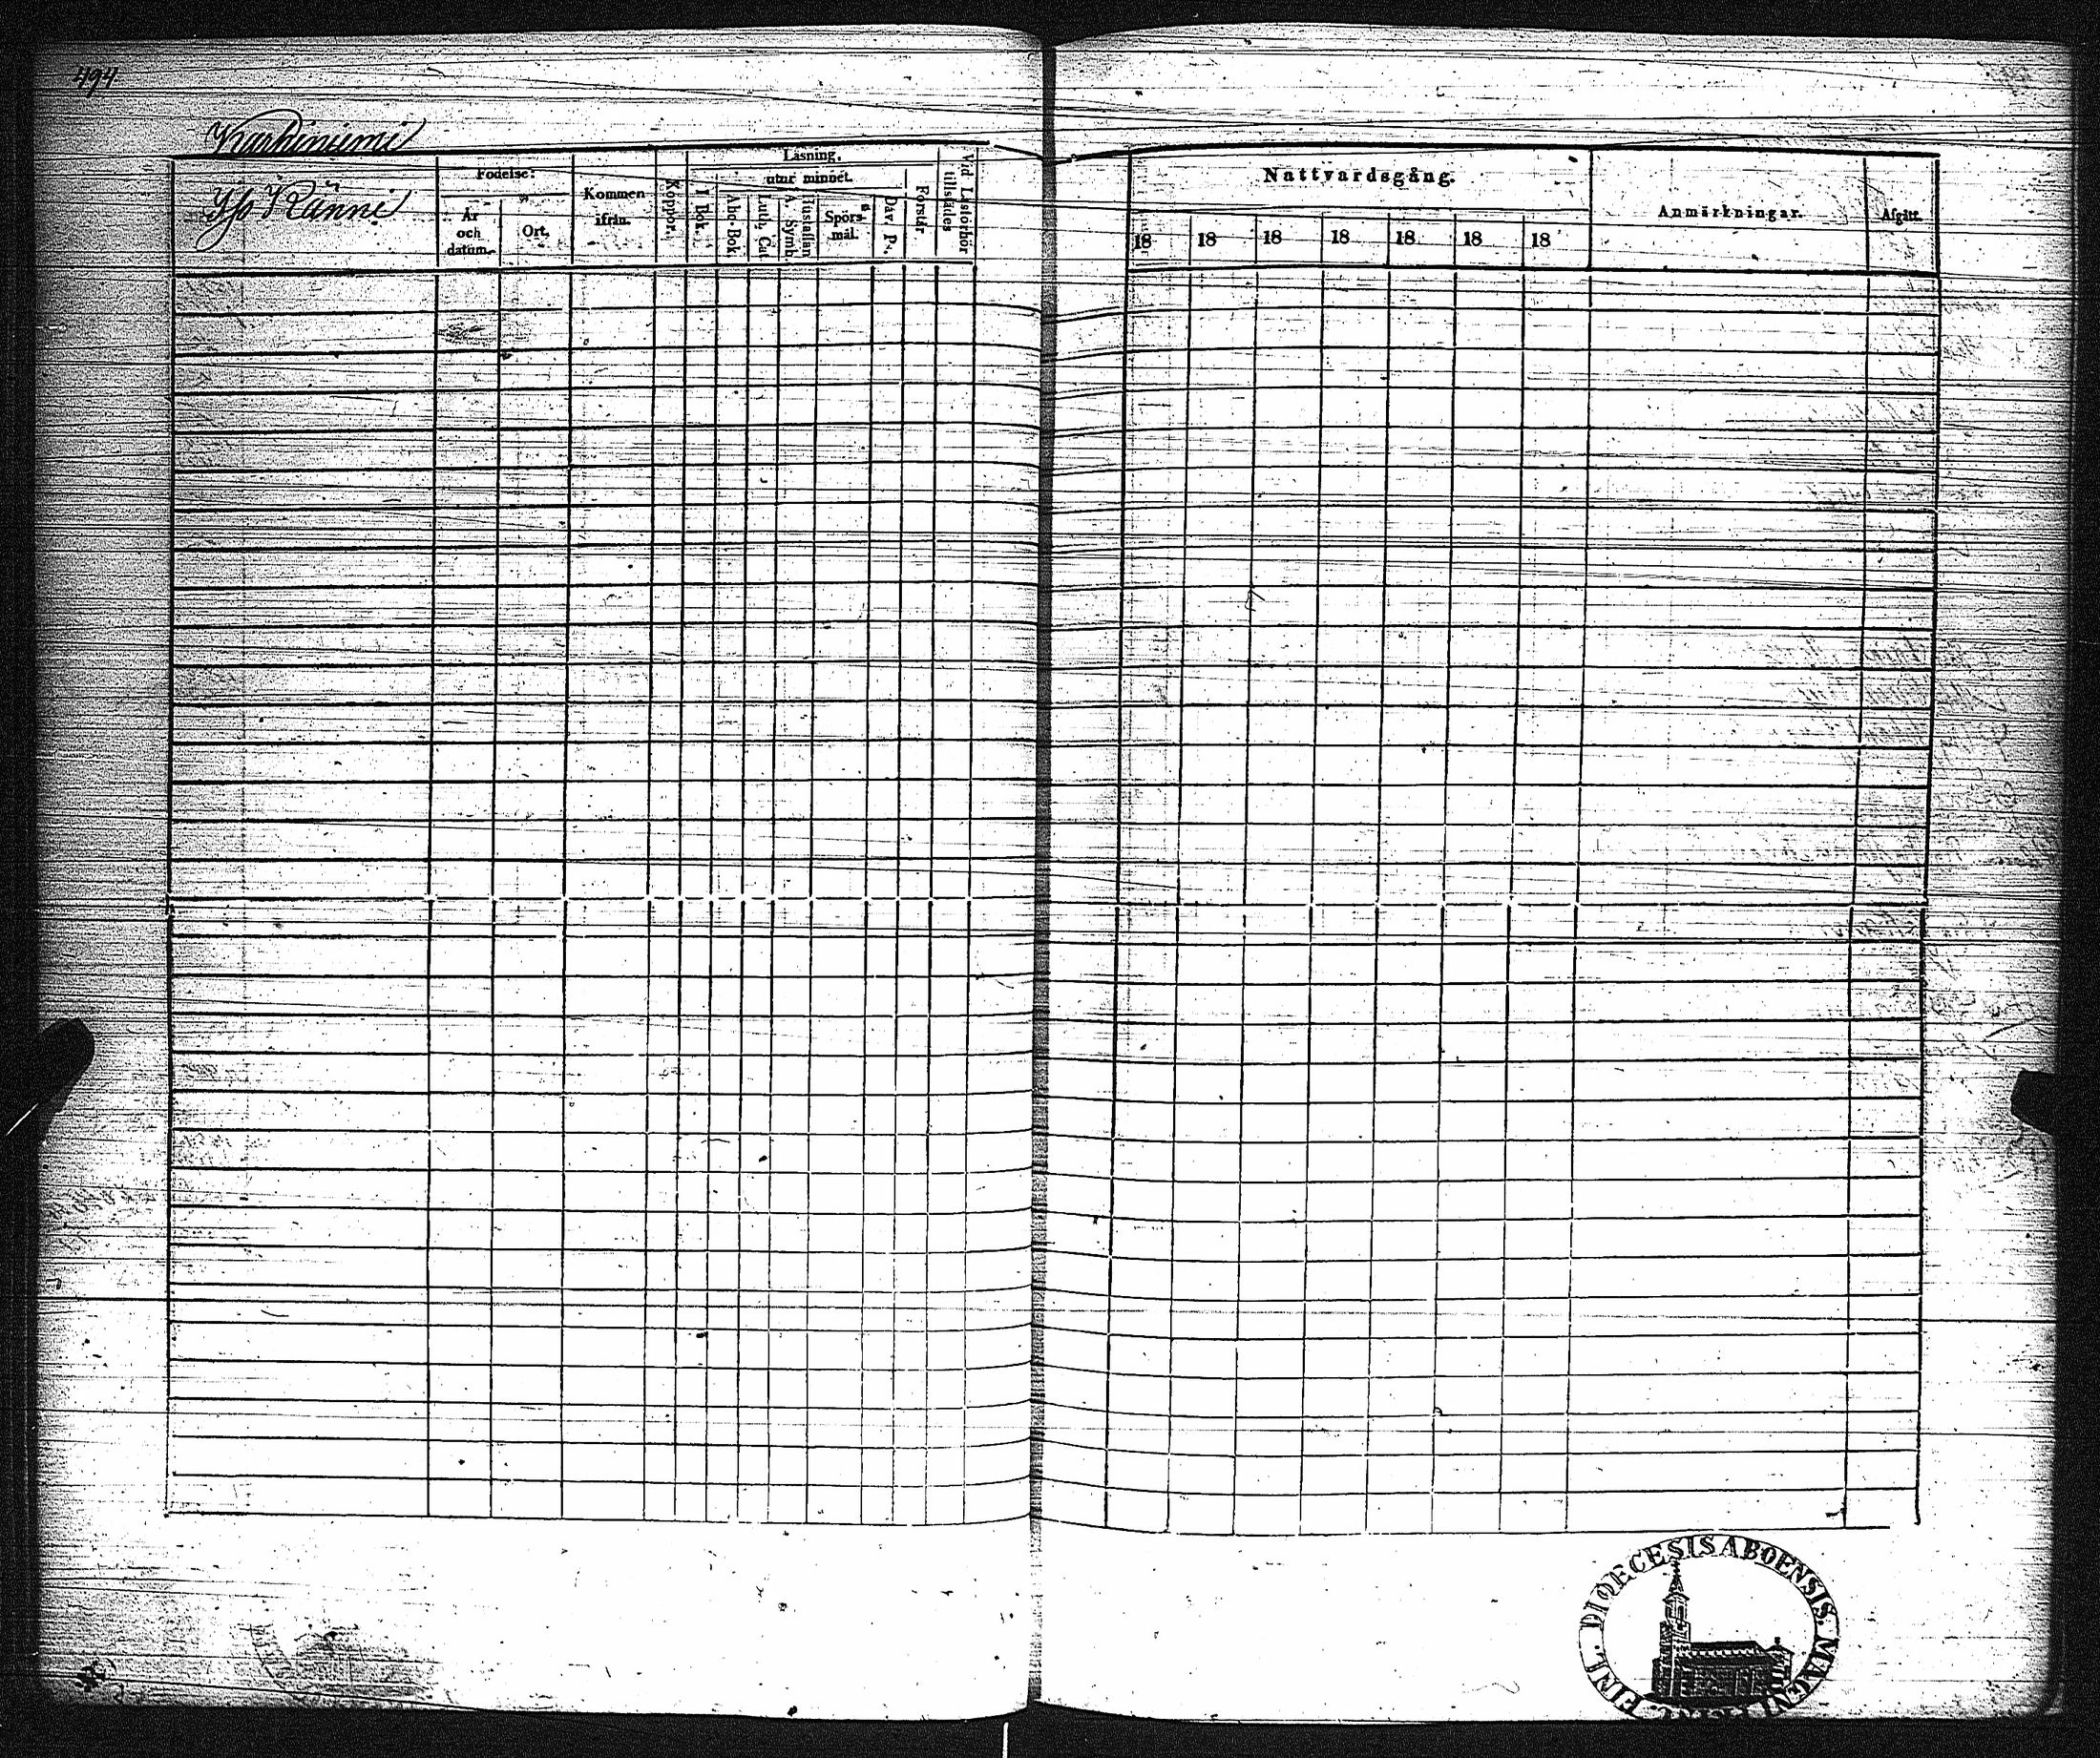 494
Karhiniemi
Yso Känni
Födelse:
År
och
datum.
Ort.
Kommen
ifrån.
Koppor.
Läsning.
I Bok.
utur minnet.
Abc-Bok.
Luth. Cat
Hustaflan
A. Symb.
Spörs-
mål.
Dav. Ps.
Förstår
Vid Läsförhör
tillstädes
Nattvardsgång.
18 18 18 18 18 18 18
Anmärkningar.
Afgått.
DIOECESIS ABOENSIS. MAGNI
FINL.